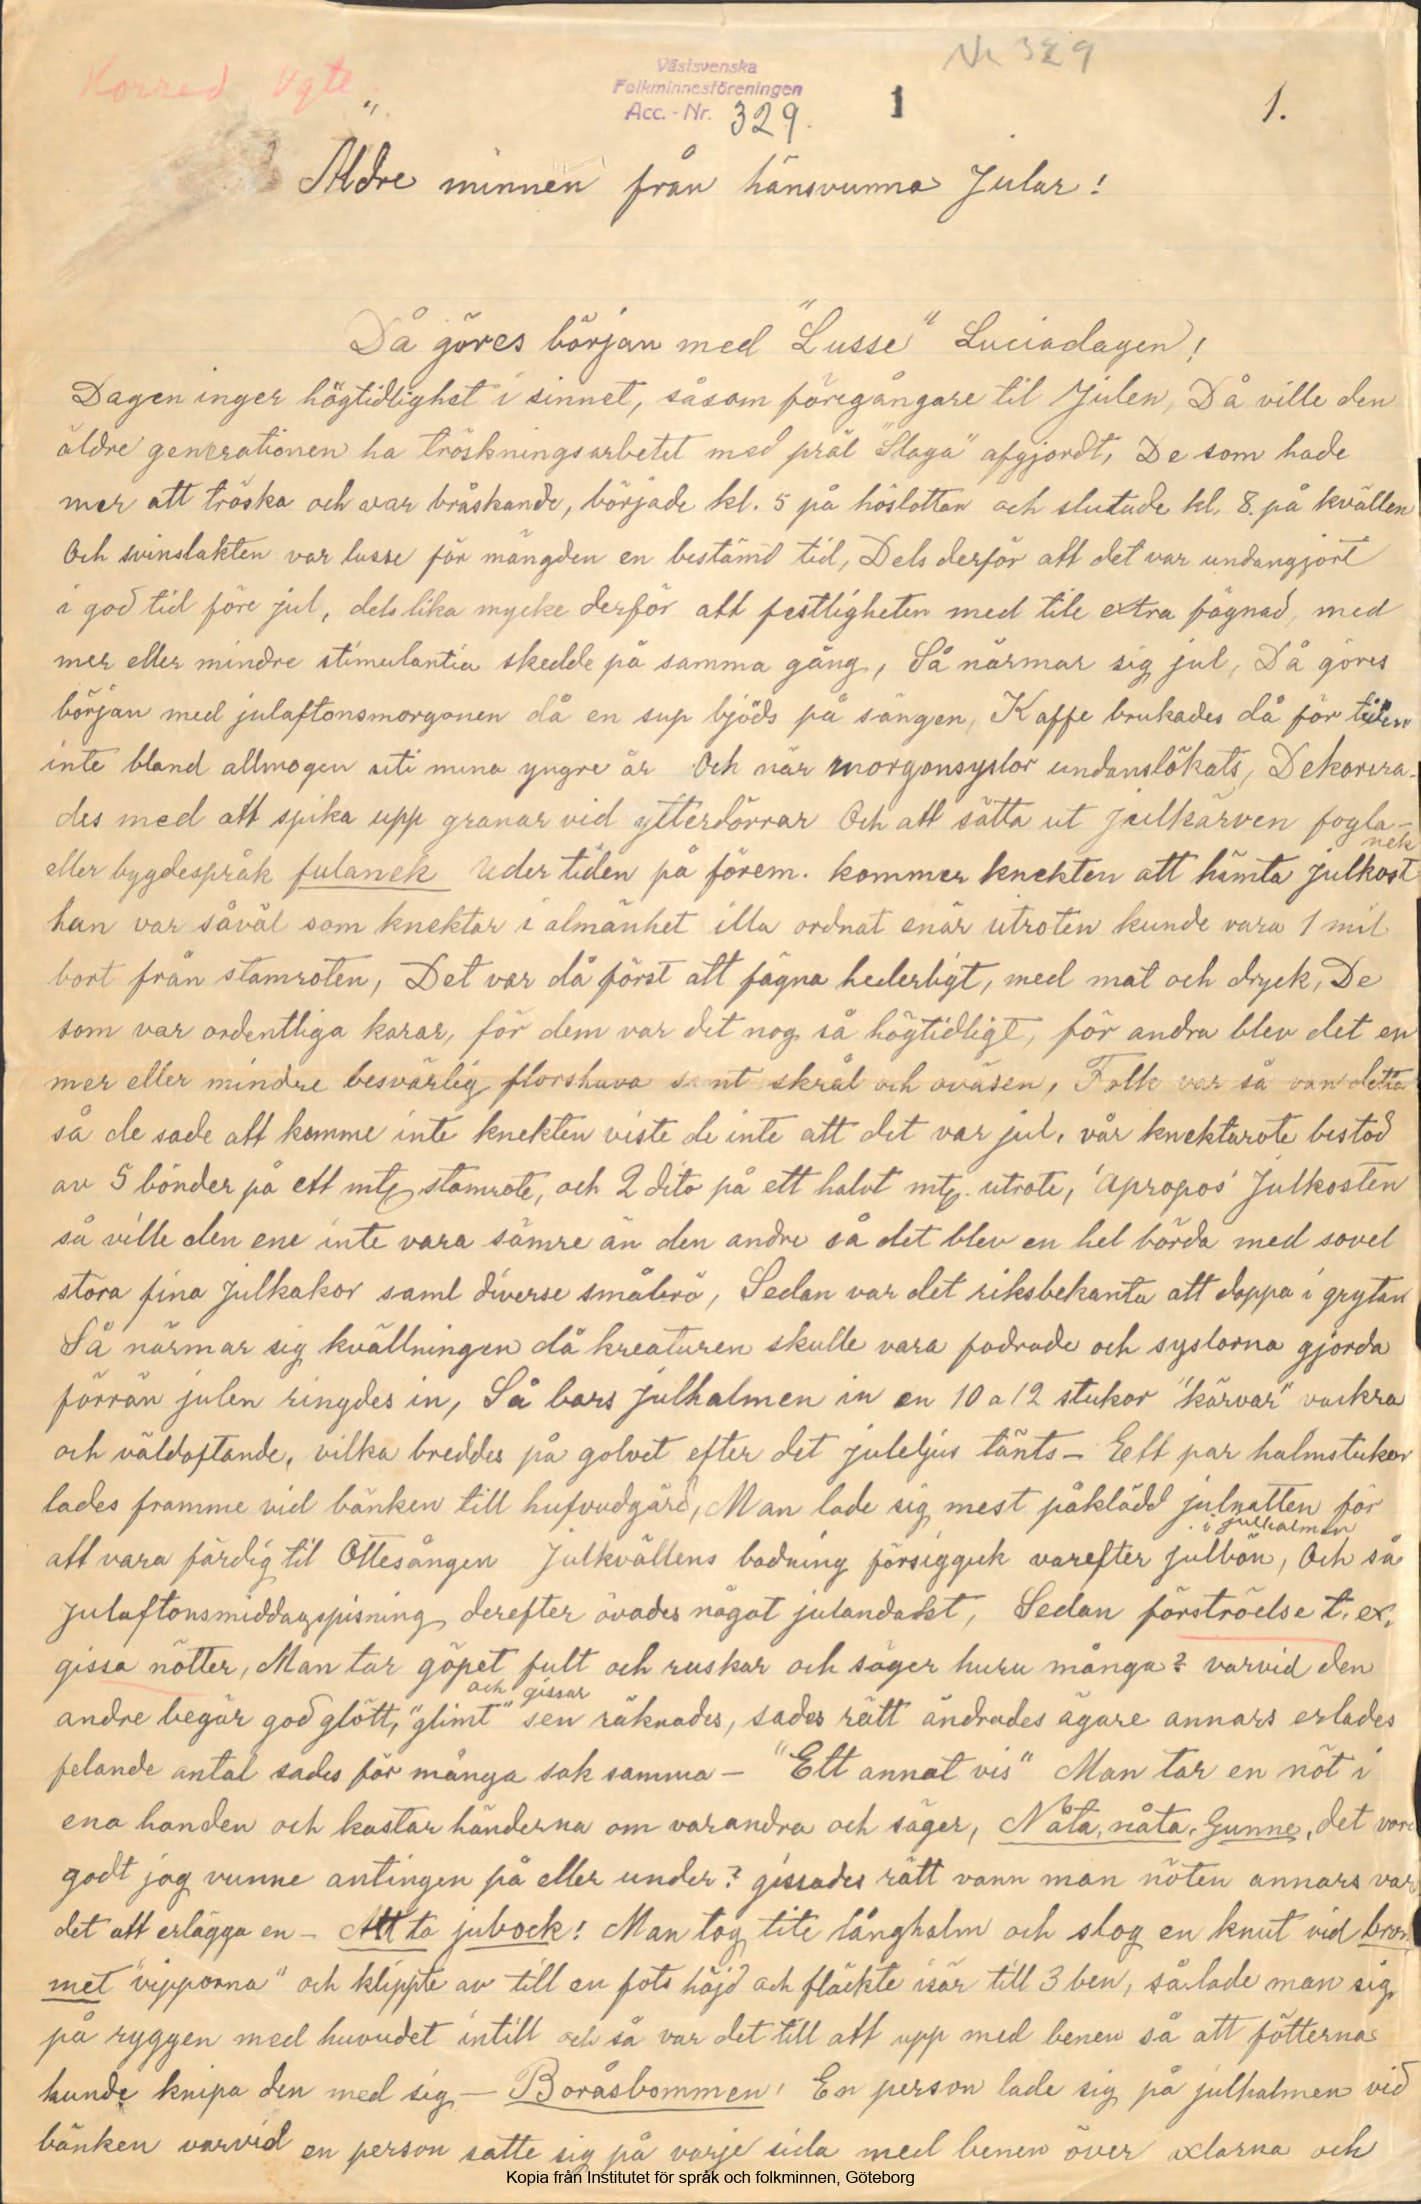 Nr 329
Västsvenska
Folkminnesföreningen
Acc.-Nr. 329.
1
1.
Äldre minnen från hänsvunna Jular!
Då göres början med "Lusse" Luciadagen!
Dagen inger högtidlighet i sinnet, såsom föregångare til Julen, Då ville den
äldre generationen ha tröskningsarbetet med präl "Slaga" afgjordt, De som hade
mer att tröska och var bråskande, började kl. 5 på höslottan och slutade kl. 8. på kvällen
Och svinslakten var lusse för mängden en bestämd tid, Dels derför att det var undangjort
i god tid före jul, dels lika mycke derför att festligheten med tile extra fägnad, med
mer eller mindre stimulantia skedde på samma gång, Så närmar sig jul, Då göres
början med julaftonsmorgonen då en sup bjöds på sängen, Kaffe brukades då för tiden
inte bland allmogen uti mina yngre år Och när morgonsyslor undanslökats, Dekorera-
des med att spika upp granar vid ytterdörrar Och att sätta ut julkärven fogla-
nek
eller bygdespråk fulanek Uder tiden på förem. kommer knekten att hämta julkost
han var såväl som knektar i almänhet illa ordnat enär utroten kunde vara 1 mil
bort från stamroten, Det var då först att fägna hederligt, med mat och dryck, De
som var ordentliga karar, för dem var det nog så högtidligt, för andra blev det en
mer eller mindre besvärlig florshuva samt skrål och oväsen, Folk var så van detta
så de sade att komme inte knekten viste de inte att det var jul, vår knektarote bestod
av 5 bönder på ett mtl stamrote, och 2 dito på ett halvt mtl. utrote, 'Apropos' Julkosten
så ville den ene inte vara sämre än den andre så det blev en hel börda med sovel
stora fina Julkakor samt diverse småbrö, Sedan var det riksbekanta att doppa i grytan
Så närmar sig kvällningen då kreaturen skulle vara fodrade och syslorna gjorda
förrän julen ringdes in, Så bars julhalmen in en 10 a 12 stukor "kärvar" vackra
och väldoftande, vilka breddes på golvet efter det juleljus tänts - Eett par halmstukor
lades framme vid bänken till hufvudgärd, Man lade sig mest påklädd julnatten för
i julhalmen
att vara färdig til Ottesången Julkvällens badning försiggick varefter julbön, Och så
Julaftonsmiddagspisning derefter övades något julandakt, Sedan förströelse t. ex.
gissa nötter, Man tar göpet fult och ruskar och säger huru många? varvid den
och gissar
andre begär god glött, "glimt" sen räknades, sades rätt ändrades ägare annars erlades
felande antal sades för många sak samma - "Ett annat vis" Man tar en nöt i
ena handen och kastar händerna om varandra och säger, Nåta, nåta, Gunne, det vore
godt jag vunne antingen på eller under? gissades rätt vann man nöten annars var
det att erlägga en - Att ta jubock! Man tog tite långhalm och slog en knut vid bror
met "vipporna" och klippte av till en fots höjd och fläckte isär till 3 ben, så lade man sig
på ryggen med huvudet intill och så var det till att upp med benen så att fötterna
kunde knipa den med sig - Boråsbommen! En person lade sig på julhalmen vid
bänken varvid en person satte sig på varje sida med benen över axlarna och
Kopia från Institutet för språk och folkminnen, Göteborg